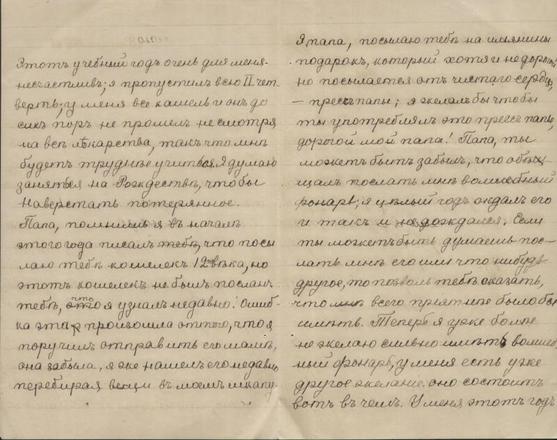 Этотъ учебный годъ очень для меня
несчастливъ; я пропустилъ всю II чет
верть; у меня все кашель и онъ до
сихъ поръ не прошелъ не смотря
на всѣ лѣкарства, такъ что мнѣ
будетъ труднѣе учиться. Я думаю
заняться на Рождествѣ, чтобы
наверстать потерянное.
Папа, помнишь я въ началѣ
этого года писалъ тебѣ, что посы
лаю тебѣ кошелекъ 12 вѣка, но
этотъ кошелекъ не былъ посланъ
тебѣ, что я узналъ недавно. Ошиб-
ка эта произошла оттого, что я
поручилъ отправить его мамѣ,
она забыла, я же нашелъ его недавно,
перебирая вещи въ моемъ шкапу.
Я папа, посылаю тебѣ на имянины
подарокъ, который хотя и не дорогъ,
но посылается отъ чистаго сердца,
— прессъ папье; я желалъ бы чтобы
ты употреблялъ это прессъ папье
дорогой мой папа! Папа, ты
можетъ быть забылъ, что обѣщ-
щалъ послать мнѣ волшебный
фонарь; я цѣлый годъ ждалъ его
и такъ и не дождался. Если
ты можетъ быть думаешь пос-
лать мнѣ его или что нибудь
другое, то позволь тебѣ сказать,
что мнѣ всего пріятнѣе было бы
имѣть. Теперь я уже болѣе
не желаю сильно имѣть волшеб
ный фонарь, у меня есть уже
другое желаніе. оно состоитъ
вотъ въ чемъ. У меня этотъ годъ